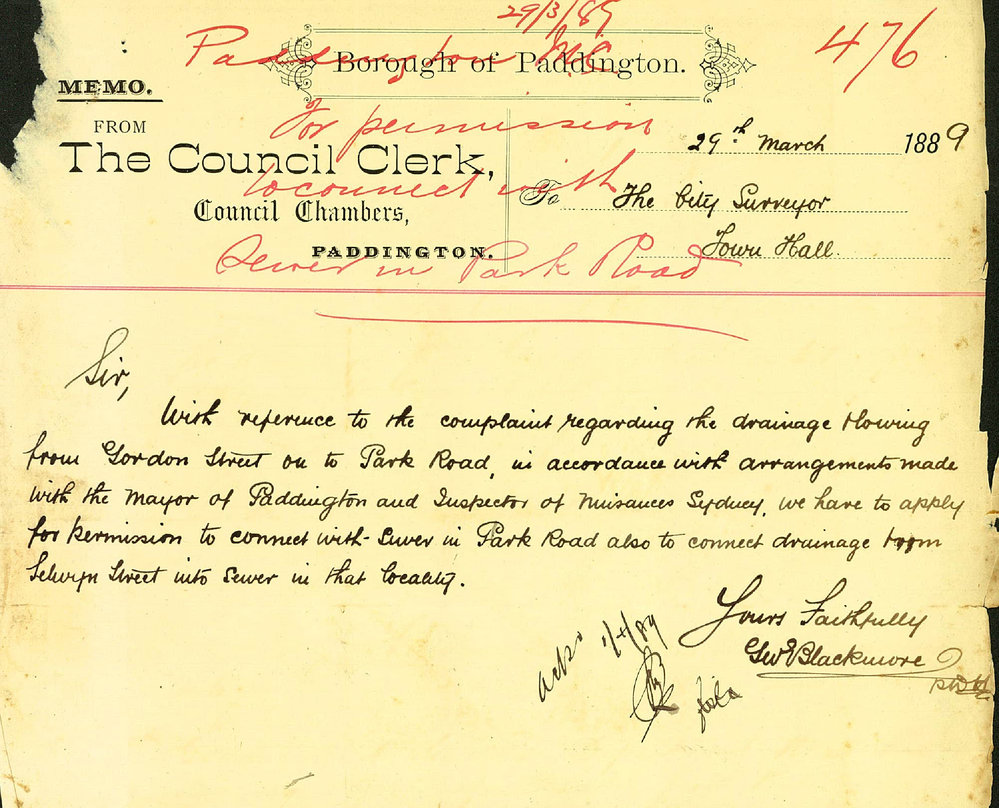 29/3/89
Paddington M.C.
476
Borough of Paddington.
MEMO.
FROM
For permission
29th March 1889
The Council Clerk,
to connect with
To The City Surveyor
Council Chambers,
Town Hall.
PADDINGTON.
Sewer in Park Road
Sir,
With reference to the complaint regarding the drainage flowing
from Gordon Street on to Park Road, in accordance with arrangements made
with the Mayor of Paddington and Inspector of Nuisances Sydney, we have to apply
for permission to connect with Sewer in Park Road also to connect drainage from
Selwyn Street into Sewer in that locality.
Yours Faithfully
Geo E Blackmore
1/4/89